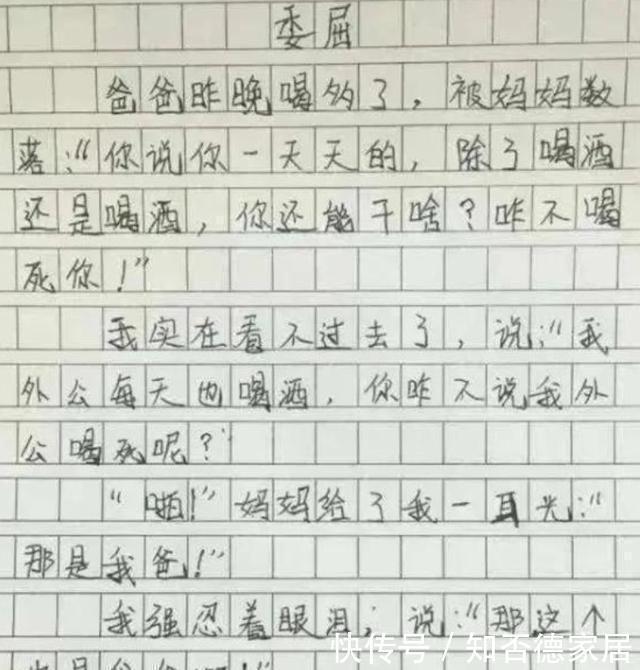 委屈
爸爸昨晚喝多了，被妈妈数
落：“你说你一天天的，除了喝酒
还是喝酒，你还能干啥？咋不喝
死你！”
我实在看不过去了，说：“我
外公每天也喝酒，你咋不说我外
公喝死呢？”
“啪！”妈妈给了我一耳光：“
那是我爸！”
我强忍着眼泪，说：“那这个
快传号/知否德家居